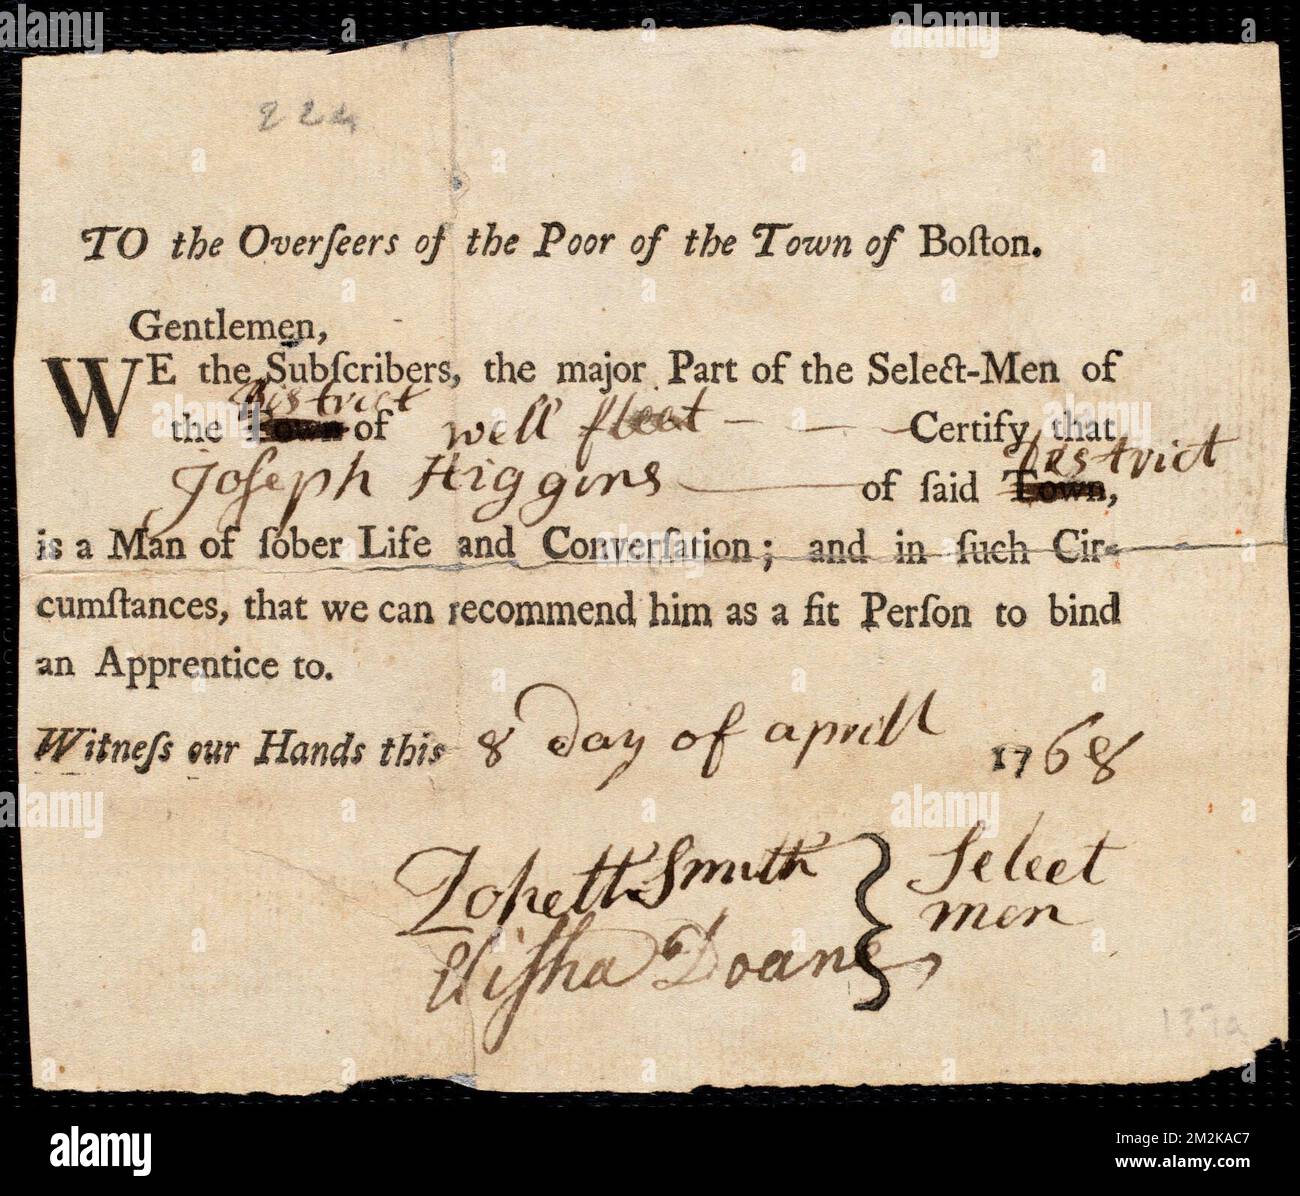 224
TO the Overſeers of the Poor of the Town of Boſton.
Gentlemen,
WE the Subſcribers, the major Part of the Select-Men of
District
the Town of well fleet - - - Certify that
District
Joſeph Higgins of ſaid Town,
is a Man of ſober Life and Converſation; and in ſuch Cir-
cumſtances, that we can recommend him as a fit Perſon to bind
an Apprentice to.
Witneſs our Hands this 8 Day of aprill 1768
Smith Select
Eliſha Doane men
alamy
Image ID: 2M2KAC7
www.alamy.com